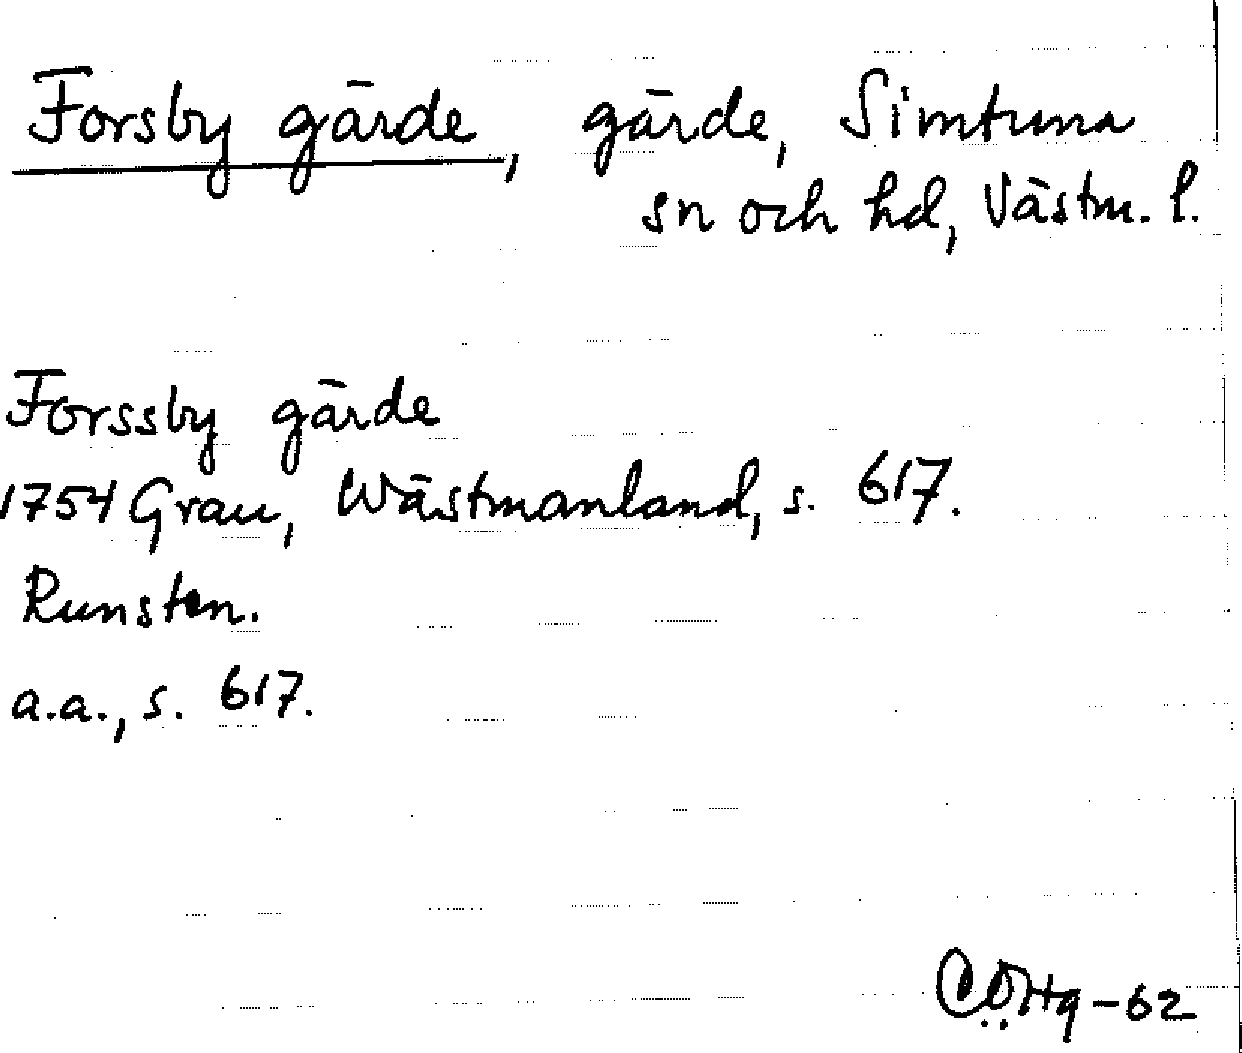 Forsby gärde, gärde, Simtuna
sn och hd, Västm. l.
Forssby gärde
1754 Grau, Wästmanland, s. 617.
Runsten.
a.a., s. 617.
-62